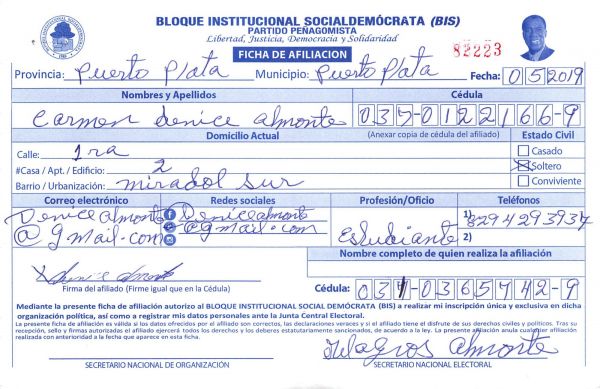 BLOQUE INSTITUCIONAL SOCIALDEMÓCRATA (BIS)
PARTIDO PEÑAGOMISTA
Libertad, Justicia, Democracia y Solidaridad
FICHA DE AFILIACION
82223
Provincia: Puerto Plata Municipio: Puerto Plata Fecha: 052019
Nombres y Apellidos Cédula
Carmen Denice Almonte 037-0122166-9
Domicilio Actual (Anexar copia de cédula del afiliado) Estado Civil
Calle: 1ra
Casado
#Casa / Apt. / Edificio: 2
Soltero
Barrio / Urbanización: Mirador Sur
Conviviente
Correo electrónico Redes sociales Profesión/Oficio Teléfonos
Denicealmonte Denicealmonte Estudiante 1) 8294293937
@gmail.com @gmail.com 2)
Nombre completo de quien realiza la afiliación
Firma del afiliado (Firme igual que en la Cédula)
Cédula: 031-0365742-9
Mediante la presente ficha de afiliación autorizo al BLOQUE INSTITUCIONAL SOCIAL DEMÓCRATA (BIS) a realizar mi inscripción única y exclusiva en dicha
organización política, así como a registrar mis datos personales ante la Junta Central Electoral.
La presente ficha de afiliación es válida si los datos ofrecidos por el afiliado son correctos, las declaraciones veraces y si el afiliado tiene el disfrute de sus derechos civiles y políticos. Tras su
recepción, sello y firmas autorizadas el afiliado ejercerá todos los derechos y los deberes estatutariamente sancionados, de acuerdo a la ley. La presente afiliación anula cualquier afiliación
realizada con anterioridad a la fecha que aparece en esta ficha.
Milagros Almonte
SECRETARIO NACIONAL DE ORGANIZACIÓN SECRETARIO NACIONAL ELECTORAL